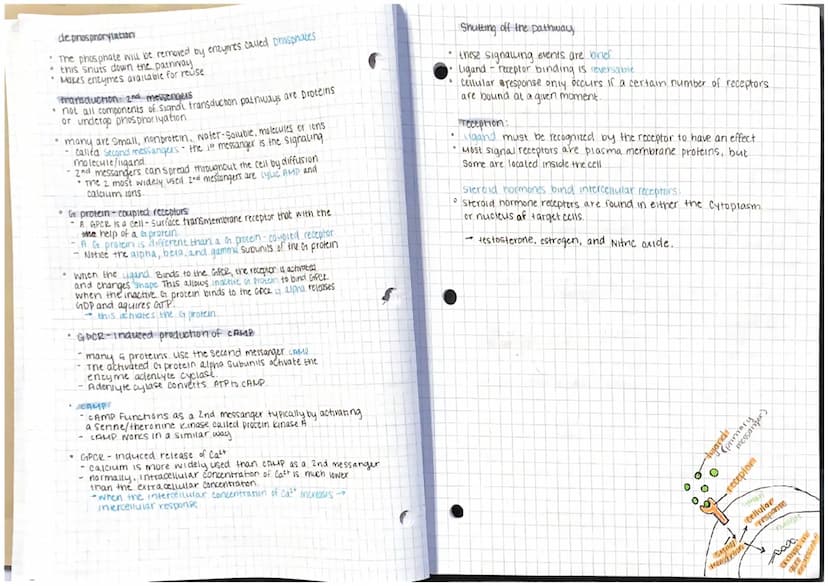 dephosphorylation
• The phosphate will be removed by enzymes called phosphates
• this shuts down the pathway
• Makes enzymes available for reuse
Transduction: 2nd messengers
• not all components of signal transduction pathways are proteins
or undergo phosphorylation
• many are small, nonprotein, water-soluble, molecules or ions
- called second messengers - the 1st messenger is the signaling
molecule/ligand.
- 2nd messengers can spread throughout the cell by diffusion
• The 2 most widely used 2nd messengers are cyclic AMP and
calcium ions
• G protein-coupled receptors
- A GPCR is a cell-surface transmembrane receptor that with the
help of a G protein
- A G protein is different than a G protein-coupled receptor
- Notice the alpha, beta, and gamma subunits of the G protein
• When the ligand binds to the GPCR, the receptor is activated
and changes shape. This allows inactive G protein to bind GPCR.
When the inactive G protein binds to the GPCR G alpha releases
GDP and aquires GTP.
→ this activates the G protein
• GPCR-induced production of cAMP
- many G proteins use the second messanger cAMP
- The activated G protein alpha subunits activate the
enzyme adenlyte cyclase.
- Adenlyte cylase converts ATP to cAMP.
• cAMP
- cAMP functions as a 2nd messanger typically by activating
a serine/therionine kinase called protein kinase A
- cAMP works in a similar way
• GPCR-induced release of Ca²⁺
- calcium is more widely used than cAMP as a 2nd messanger
- normally, intracellular concentration of Ca²⁺ is much lower
than the extracellular concentration.
→ when the intercellular concentration of Ca²⁺ increases →
intercellular response
Shutting off the pathway
• these signalling events are brief
• ligand-receptor binding is reversable
• cellular response only occurs if a certain number of receptors
are bound at a given moment.
reception:
• ligand must be recognized by the receptor to have an effect
• Most signal receptors are plasma membrane proteins, but
some are located inside the cell
Steroid hormones bind intercellular receptors:
• Steroid hormone receptors are found in either the cytoplasm
or nucleus of target cells.
→ testosterone, estrogen, and Nitric oxide.
ligands
(primary
messanger)
reception
cellular
response
signal
transduction